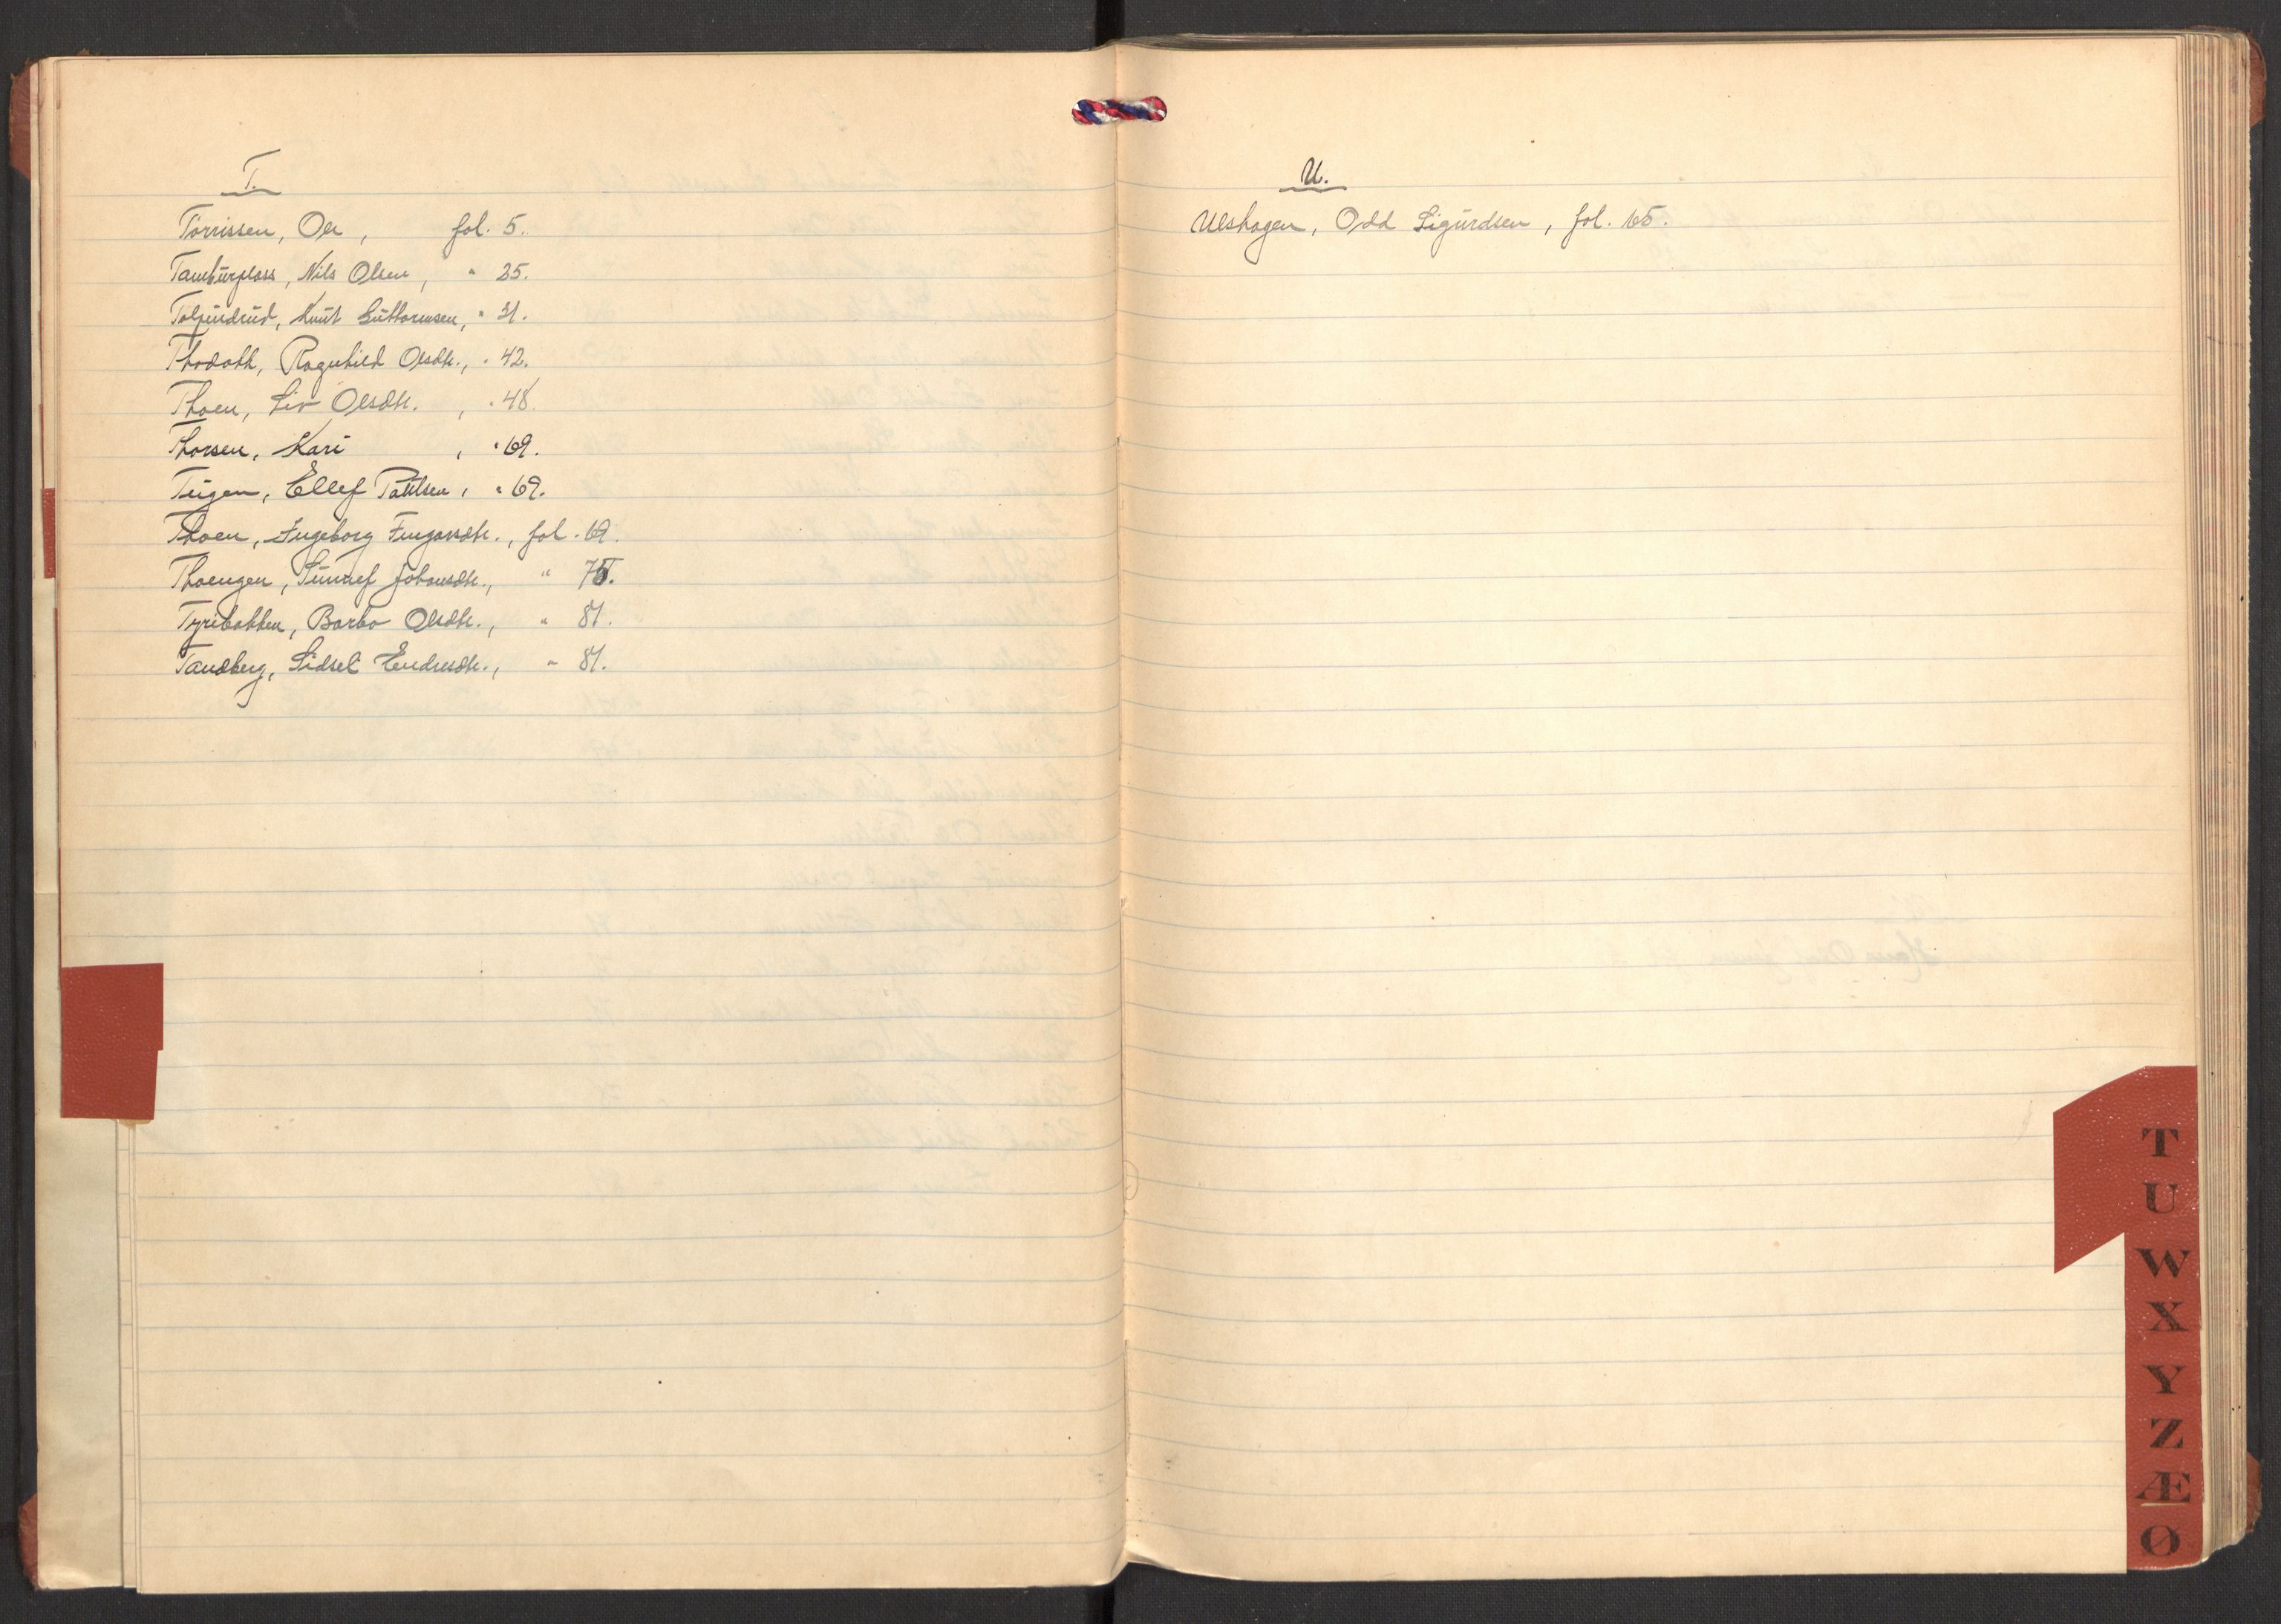 T.
Torrissen, Ole, fol. 5.
Tamburplass, Nils Olsen, " 25.
Tolpinrud, Knut Guttormsen, " 31.
Thodokk, Ragnhild Olsdtr., " 42.
Thoen, Liv Olsdtr. , " 48.
Thorsen, Kari , " 69.
Teigen, Ellef Paulsen, " 69.
Thoen, Ingeborg Fingarsdtr., fol. 69.
Thoengen, Sunnef Johansdtr., " 75.
Tyribakken, Barbo Olsdtr., " 81.
Tandberg, Sidsel Endresdtr., " 81.
U.
Ulshagen, Odd Sigurdsen, fol. 65.
T
U
W
X
Y
Z
Æ
Ø